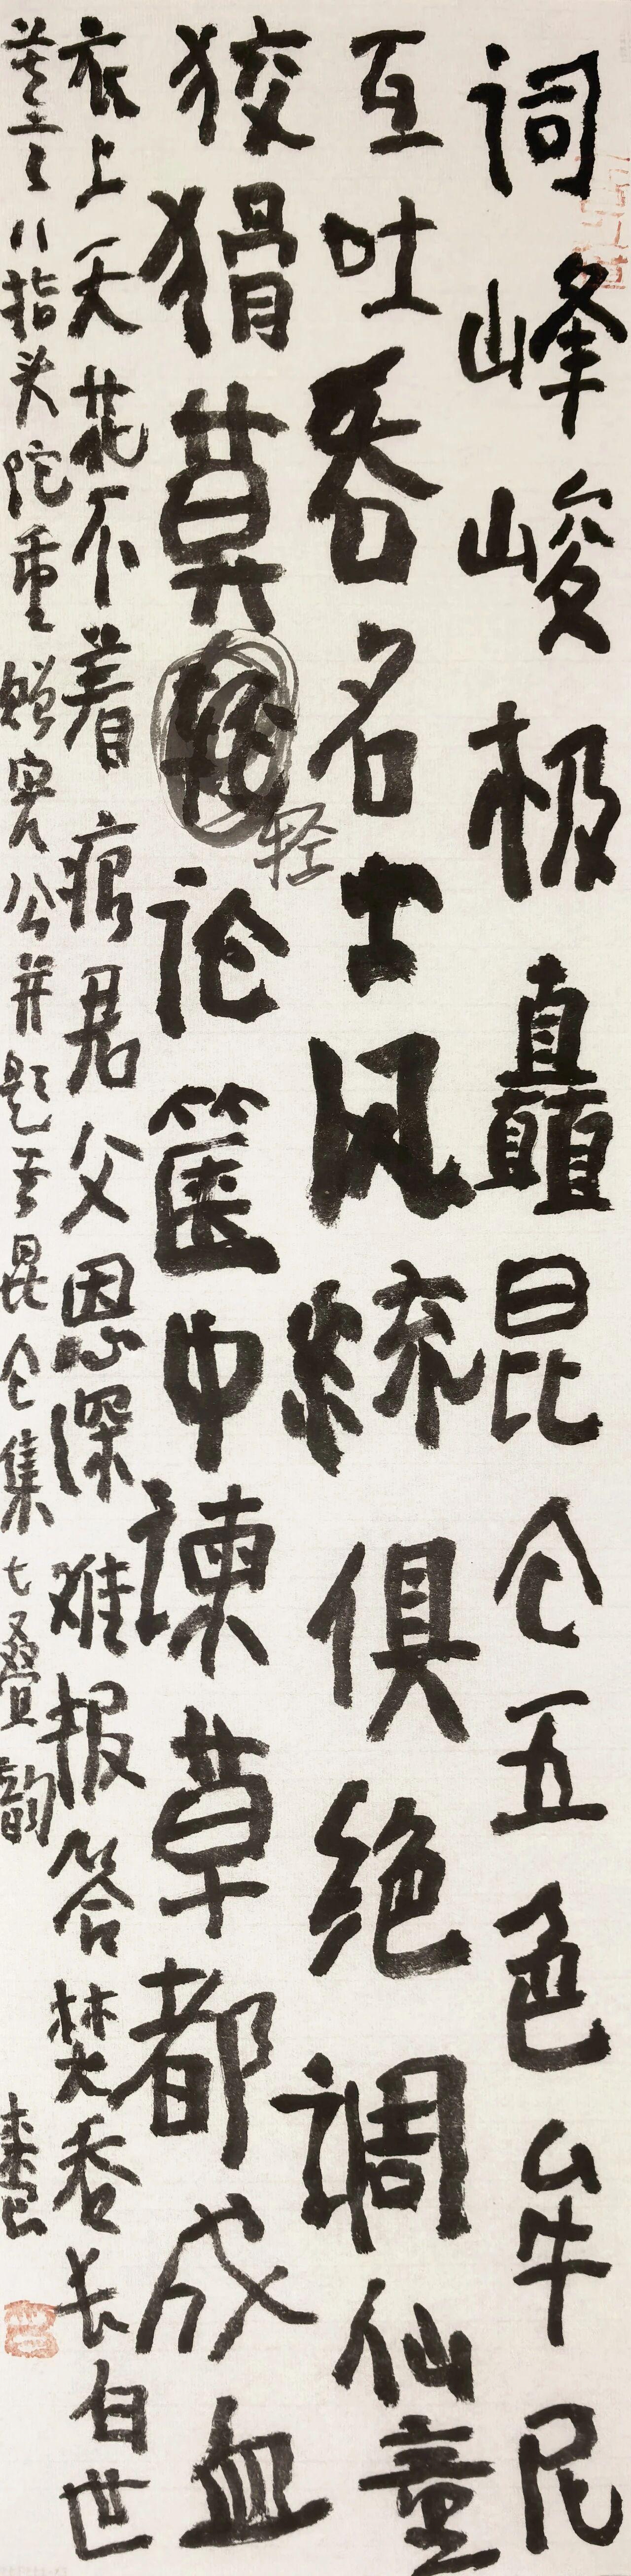 词峰峻极矗昆仑五色牟尼
互吐吞名士风统俱绝调仙童
狡猾莫轻论箧中谏草都成血
轻
衣上天花不着痕君父恩深难报答焚香长自世
八指头陀重赠公并题昆仑集七叠韵